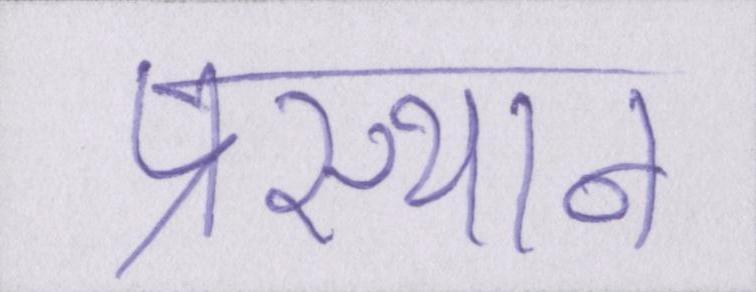 प्रस्थान